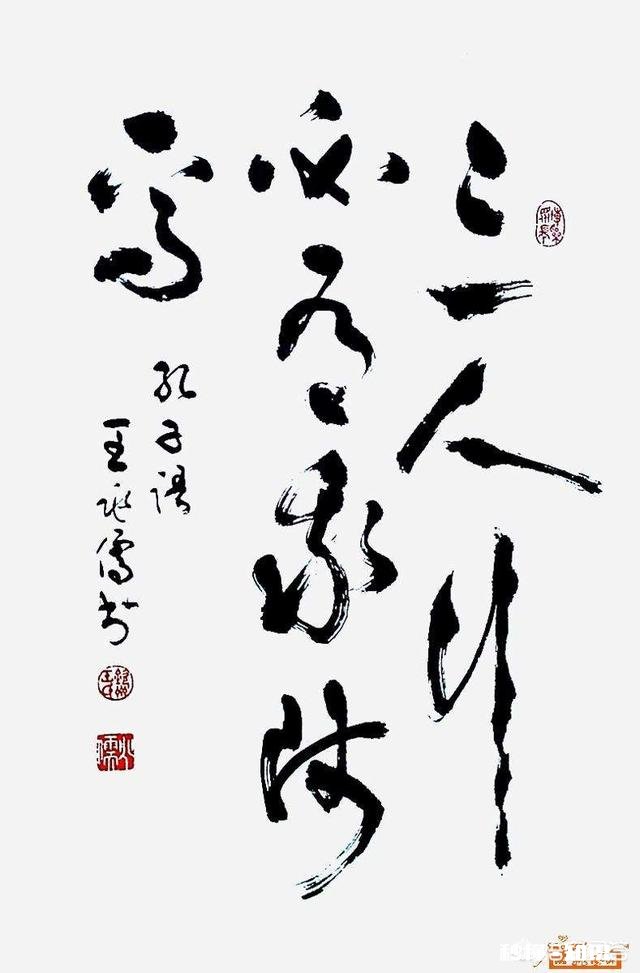 三人行
必有我师
焉
孔子语